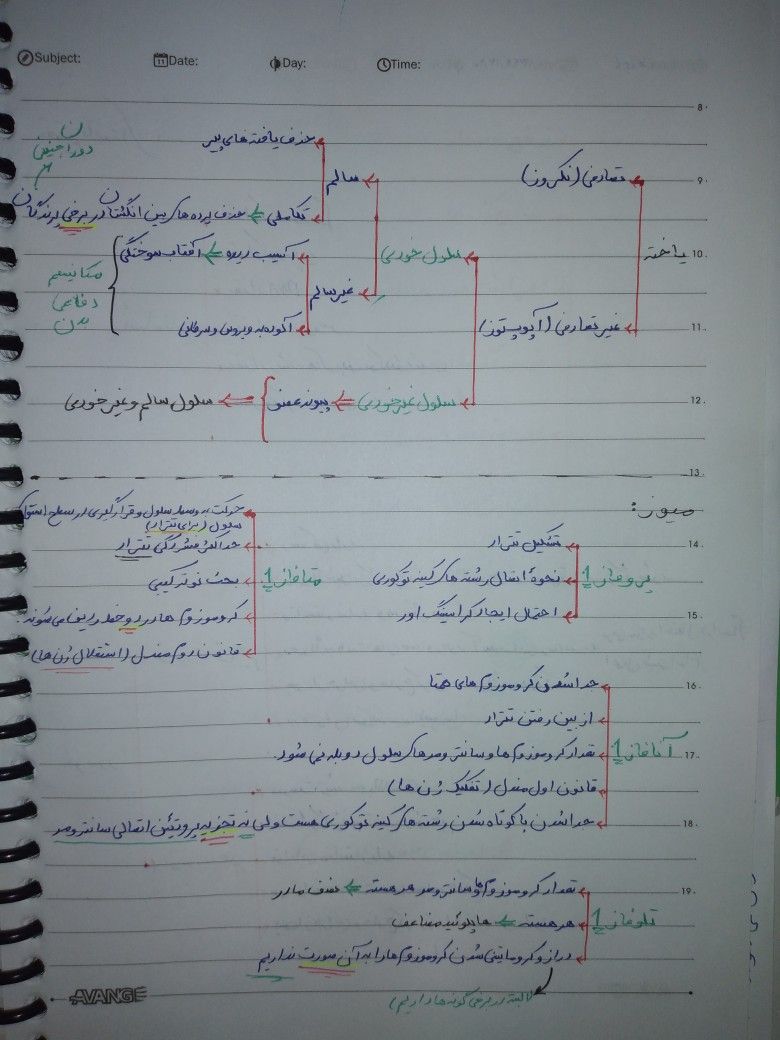 Subject: Date: Day: Time:
8
حذف یافته های پیر
ن
دورا جنینی
م
9
تصادفی (نکروز)
سالم
تکاملی ← حذف پرده های بین انگشتان در برخی پرندگان
10
یاخته
سلول خودی
آسیب دیده ← آفتاب سوختگی
مکانیسم
دفاعی
بدن
غیر سالم
11
غیر تصادفی (آپوپتوز)
آلوده به ویروس و سرطانی
12
سلول غیر خودی ← پیوند عضو ← سلول سالم و غیر خودی
13
میوز:
14
پروفاز 1
تشکیل تتراد
نحوهٔ اتصال رشته های کینه توکوری
15
احتمال ایجاد کراسینگ اور
متافاز 1
حرکت به وسط سلول و قرارگیری در سطح استوای
سلول (برای تتراد)
حداکثر فشردگی تتراد
بحث نوترکیبی
کروموزوم ها در دو خط ردیف می شوند.
قانون دوم مندل (استقلال ژن ها)
16
آنافاز 1
جدا شدن کروموزوم های همتا
از بین رفتن تتراد
17
تعداد کروموزوم ها و سانترومرهای سلول دو برابر نمی شود.
قانون اول مندل (تفکیک ژن ها)
18
جدا شدن با کوتاه شدن رشته های کینه توکوری هست ولی نه تجزیه پروتئین اتصالی سانترومر
19
تلوفاز 1
تعداد کروموزوم ها و سانترومر هر هسته ← نصف مادر
هر هسته ← هاپلوئید مضاعف
دراز و کروماتینی شدن کروموزوم ها را به آن صورت نداریم
(البته در برخی گونه ها داریم)
AVANGE